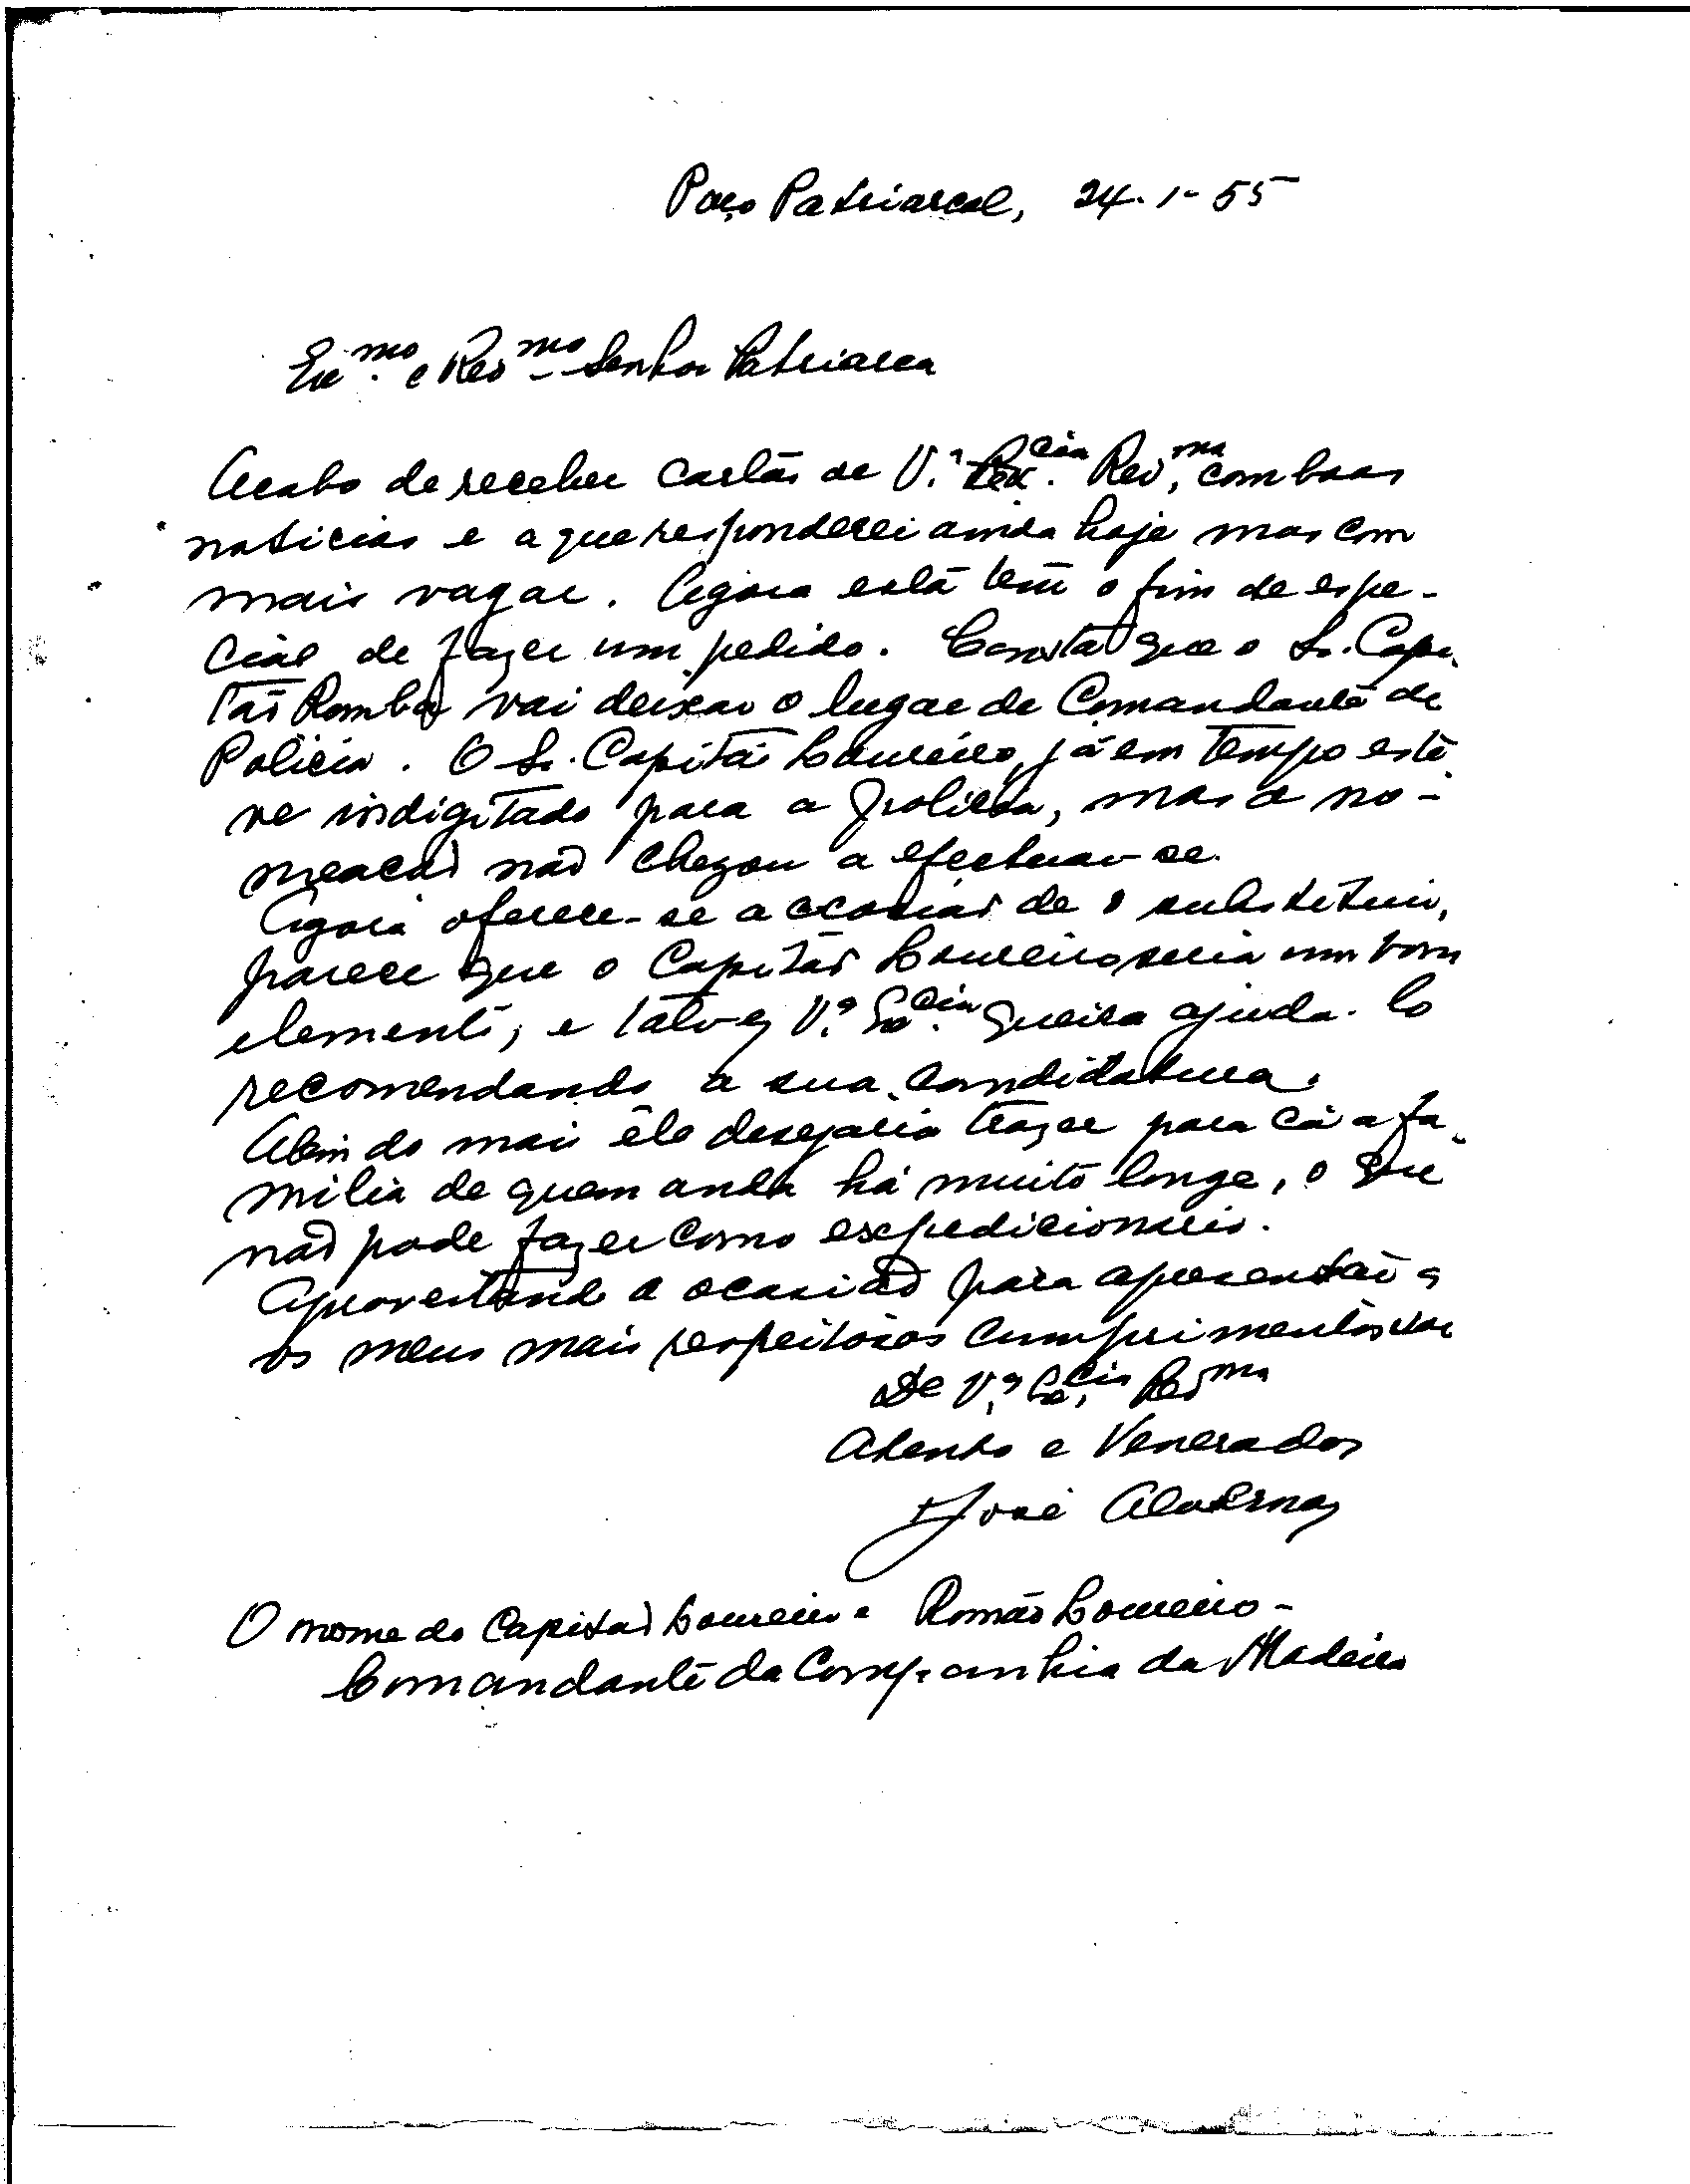 Paço Patriarcal, 24-1-55
Exmo. e Revmo. Senhor Patriarca
Acabo de receber cartão de V.ª Excia. Revma, com boas
noticias e a que responderei ainda hoje mas com
mais vagar. Agora esta tem o fim de espe-
cial de fazer um pedido. Consta que o Sr. Capi-
tão Romba vai deixar o lugar de Comandante de
Policia. O Sr. Capitão Loureiro, já em tempo este-
ve indigitado para a policia, mas a no-
meacão não chegou a efectuar-se.
Agora oferece-se a ocasião de o substituir,
parece que o Capitão Loureiro seria um bom
elemento, e talvez V.ª Excia. queira ajuda-lo
recomendando a sua candidatura.
Alem do mais êle desejaria trazer para cá a fa-
milia de quem anda há muito longe, o que
não pode fazer como expedicionario.
Aproveitando a ocasião para apresentar
os meus mais respeitosos cumprimentos sou
De V.ª Excia. Revma
Atento e Venerador
José
O nome do Capitão Loureiro é Romão Loureiro -
Comandante da Companhia da Madeira